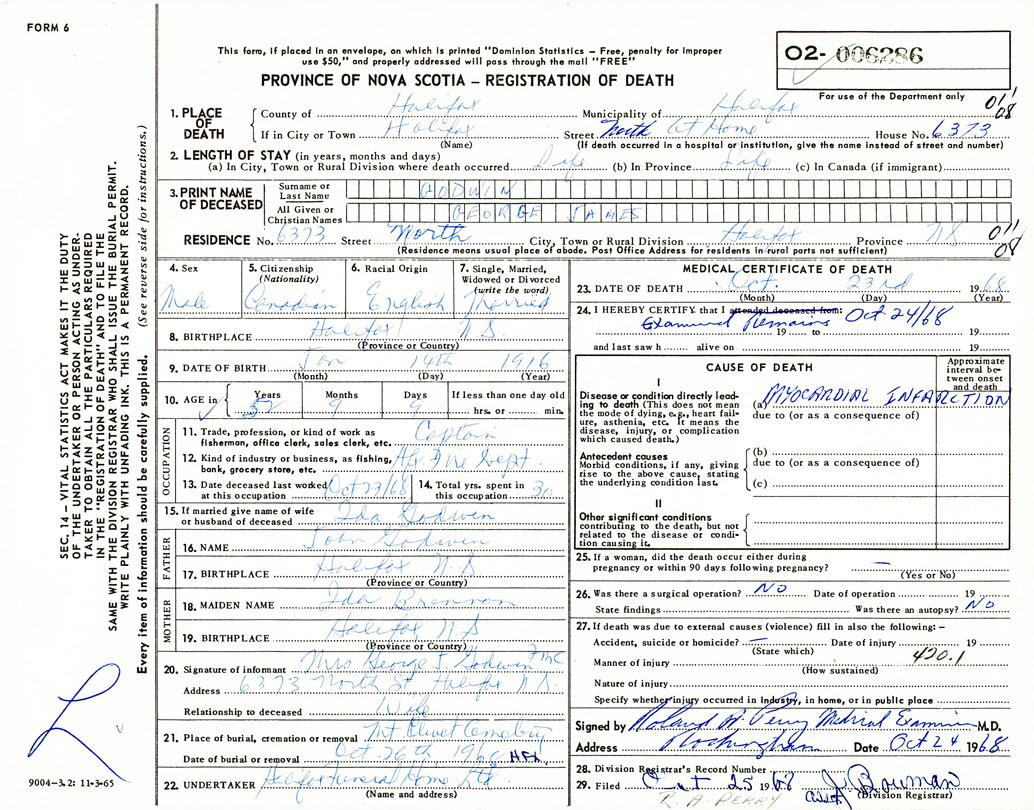 FORM 6
This form, if placed in an envelope, on which is printed "Dominion Statistics – Free, penalty for improper
use $50," and properly addressed will pass through the mail "FREE"
PROVINCE OF NOVA SCOTIA – REGISTRATION OF DEATH
02- 006286
For use of the Department only
011
08
1. PLACE OF DEATH
County of Halifax Municipality of Halifax
If in City or Town Halifax Street North At Home House No. 6373
(Name) (If death occurred in a hospital or institution, give the name instead of street and number)
2. LENGTH OF STAY (in years, months and days)
(a) In City, Town or Rural Division where death occurred Life (b) In Province Life (c) In Canada (if immigrant)
3. PRINT NAME OF DECEASED
Surname or Last Name GODWIN
All Given or Christian Names GEORGE JAMES
RESIDENCE No. 6373 Street North City, Town or Rural Division Halifax Province NS
011
08
(Residence means usual place of abode. Post Office Address for residents in rural parts not sufficient)
4. Sex Male
5. Citizenship (Nationality) Canadian
6. Racial Origin English
7. Single, Married, Widowed or Divorced (write the word) Married
8. BIRTHPLACE Halifax NS
(Province or Country)
9. DATE OF BIRTH Jan 14th 1916
(Month) (Day) (Year)
10. AGE in Years 52 Months 9 Days 9 If less than one day old hrs. or min.
OCCUPATION
11. Trade, profession, or kind of work as
fisherman, office clerk, sales clerk, etc. Captain
12. Kind of industry or business, as fishing,
bank, grocery store, etc. Hfx Fire Dept
13. Date deceased last worked
at this occupation Oct 23/68
14. Total yrs. spent in
this occupation 30
15. If married give name of wife
or husband of deceased Ida Godwin
FATHER
16. NAME John Godwin
17. BIRTHPLACE Halifax N.S
(Province or Country)
MOTHER
18. MAIDEN NAME Ida Brennan
19. BIRTHPLACE Halifax N S
(Province or Country)
20. Signature of informant Mrs George J. Godwin
Address 6373 North St Halifax N S
Relationship to deceased Wife
21. Place of burial, cremation or removal Mt Olivet Cemetery
Date of burial or removal Oct 26th 1968 HFX.
22. UNDERTAKER Halifax Funeral Home Ltd
(Name and address)
MEDICAL CERTIFICATE OF DEATH
23. DATE OF DEATH Oct. 23rd 1968
(Month) (Day) (Year)
24. I HEREBY CERTIFY that I attended deceased from: Oct 24/68
Examined Remains 19 to 19
and last saw h alive on 19
CAUSE OF DEATH
Approximate interval between onset and death
I
Disease or condition directly lead-
ing to death (This does not mean
the mode of dying, e.g., heart fail-
ure, asthenia, etc. It means the
disease, injury, or complication
which caused death.)
(a) MYOCARDIAL INFARCTION
due to (or as a consequence of)
Antecedent causes
Morbid conditions, if any, giving
rise to the above cause, stating
the underlying condition last.
(b)
due to (or as a consequence of)
(c)
II
Other significant conditions
contributing to the death, but not
related to the disease or condi-
tion causing it.
25. If a woman, did the death occur either during
pregnancy or within 90 days following pregnancy? —
(Yes or No)
26. Was there a surgical operation? NO Date of operation 19
State findings Was there an autopsy? NO
27. If death was due to external causes (violence) fill in also the following: –
Accident, suicide or homicide? — Date of injury 19
(State which)
420.1
Manner of injury
(How sustained)
Nature of injury
Specify whether injury occurred in Industry, in home, or in public place
Signed by Roland A. Perry Medical Examiner M.D.
Address Rockingham Date Oct 24 1968
28. Division Registrar's Record Number
29. Filed Oct 25 1968 asst J Bowman
(Division Registrar)
R. A. PERRY
SEC. 14 – VITAL STATISTICS ACT MAKES IT THE DUTY
OF THE UNDERTAKER OR PERSON ACTING AS UNDER-
TAKER TO OBTAIN ALL THE PARTICULARS REQUIRED
IN THE "REGISTRATION OF DEATH" AND TO FILE THE
SAME WITH THE DIVISION REGISTRAR WHO SHALL ISSUE THE BURIAL PERMIT.
WRITE PLAINLY WITH UNFADING INK. THIS IS A PERMANENT RECORD.
Every item of information should be carefully supplied. (See reverse side for instructions.)
9004-3.2: 11-3-65